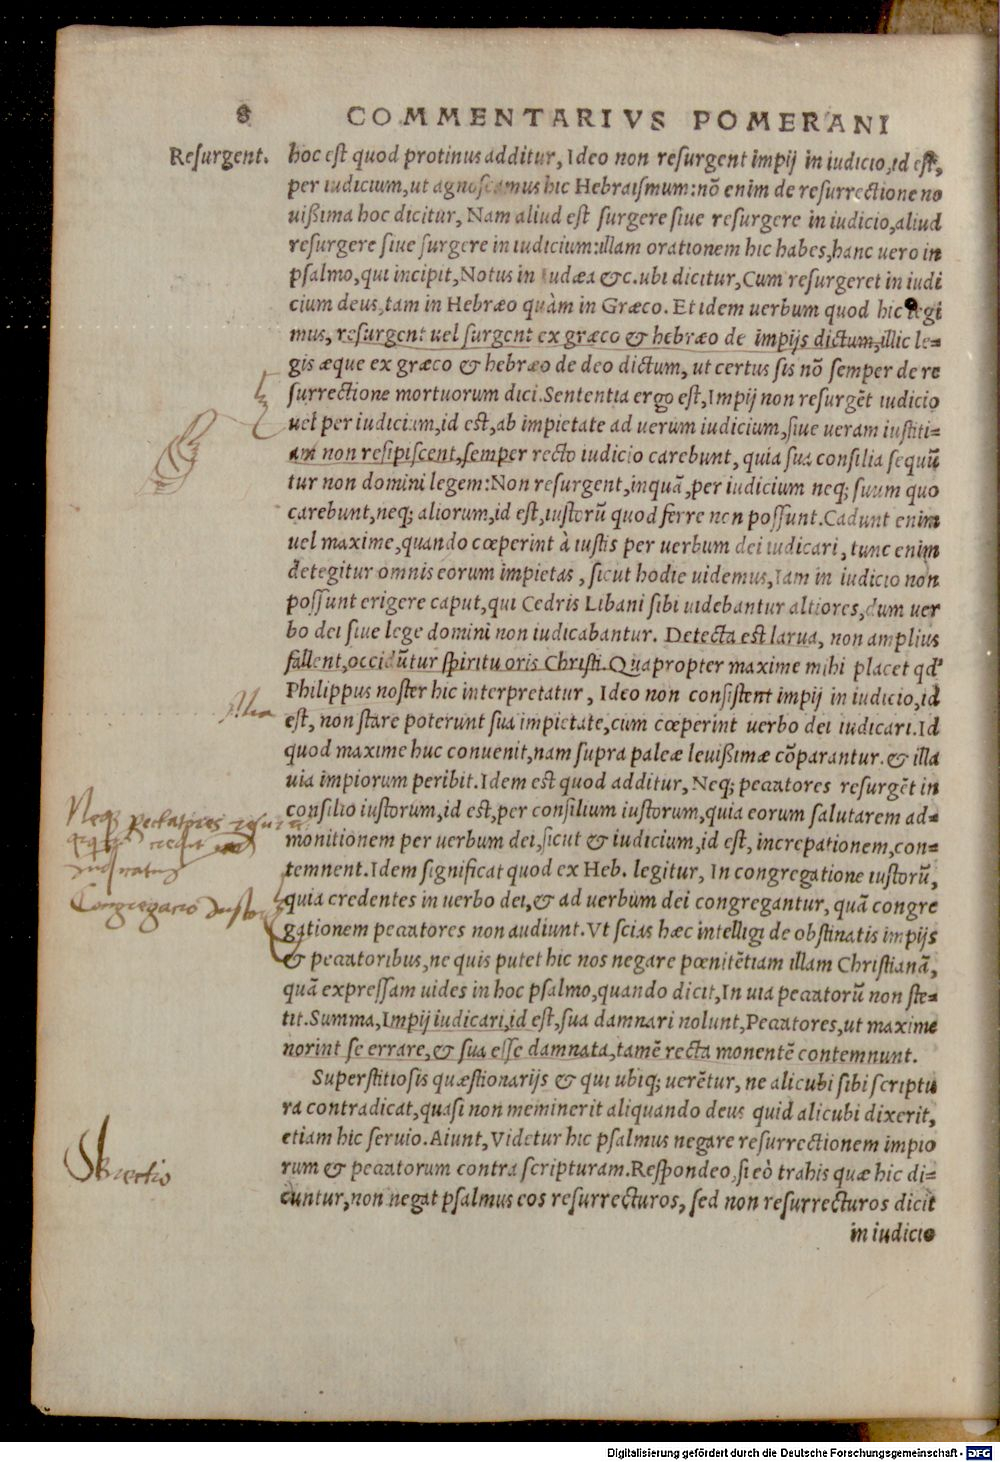 8 COMMENTARIVS POMERANI
Resurgent.
hoc est quod protinus additur, Ideo non resurgent impij in iudicio, id est,
per iudicium, ut agnoscamus hic Hebraismum: nõ enim de resurrectione no
uißima hoc dicitur, Nam aliud est surgere siue resurgere in iudicio, aliud
resurgere siue surgere in iudicium: illam orationem hic habes, hanc uero in
psalmo, qui incipit, Notus in Iudæa &c. ubi dicitur, Cum resurgeret in iudi
cium deus, tam in Hebræo quàm in Græco. Et idem uerbum quod hic legi
mus, resurgent uel surgent ex græco & hebræo de impijs dictum, illic le-
gis æque ex græco & hebræo de deo dictum, ut certus sis nõ semper de re
surrectione mortuorum dici. Sententia ergo est, Impij non resurgẽt iudicio
uel per iudicium, id est, ab impietate ad uerum iudicium, siue ueram iustiti-
am non resipiscent, semper recto iudicio carebunt, quia sua consilia sequũ
tur non domini legem: Non resurgent, inquã, per iudicium neq; suum quo
carebunt, neq; aliorum, id est, iustorũ quod ferre non possunt. Cadunt enim
uel maxime, quando cœperint à iustis per uerbum dei iudicari, tunc enim
detegitur omnis eorum impietas, sicut hodie uidemus, Iam in iudicio non
possunt erigere caput, qui Cedris Libani sibi uidebantur altiores, dum uer
bo dei siue lege domini non iudicabantur. Detecta est larua, non amplius
fallent, occidũtur spiritu oris Christi. Quapropter maxime mihi placet qd'
Philippus noster hic interpretatur, Ideo non consistent impij in iudicio, id
est, non stare poterunt sua impietate, cum cœperint uerbo dei iudicari. Id
quod maxime huc conuenit, nam supra paleæ leuißimæ cõparantur. & illa
uia impiorum peribit. Idem est quod additur, Neq; peccatores resurgẽt in
consilio iustorum, id est, per consilium iustorum, quia eorum salutarem ad-
monitionem per uerbum dei, sicut & iudicium, id est, increpationem, con-
temnent. Idem significat quod ex Heb. legitur, In congregatione iustorũ,
quia credentes in uerbo dei, & ad uerbum dei congregantur, quã congre
gationem peccatores non audiunt. Vt scias hæc intelligi de obstinatis impijs
& peccatoribus, ne quis putet hic nos negare pœnitẽtiam illam Christianã,
quã expressam uides in hoc psalmo, quando dicit, In uia peccatorũ non ste-
tit. Summa, Impij iudicari, id est, sua damnari nolunt, Peccatores, ut maxime
norint se errare, & sua esse damnata, tamẽ recta monentẽ contemnunt.
Superstitiosis quæstionarijs & qui ubiq; uerẽtur, ne alicubi sibi scriptu
ra contradicat, quasi non meminerit aliquando deus quid alicubi dixerit,
etiam hic seruio. Aiunt, Videtur hic psalmus negare resurrectionem impio
rum & peccatorum contra scripturam. Respondeo, si eò trahis quæ hic di-
cuntur, non negat psalmus eos resurrecturos, sed non resurrecturos dicit
in iudicio
Neq; peccatores
Congregatio Iustorum
Obiectio
Digitalisierung gefördert durch die Deutsche Forschungsgemeinschaft - DFG